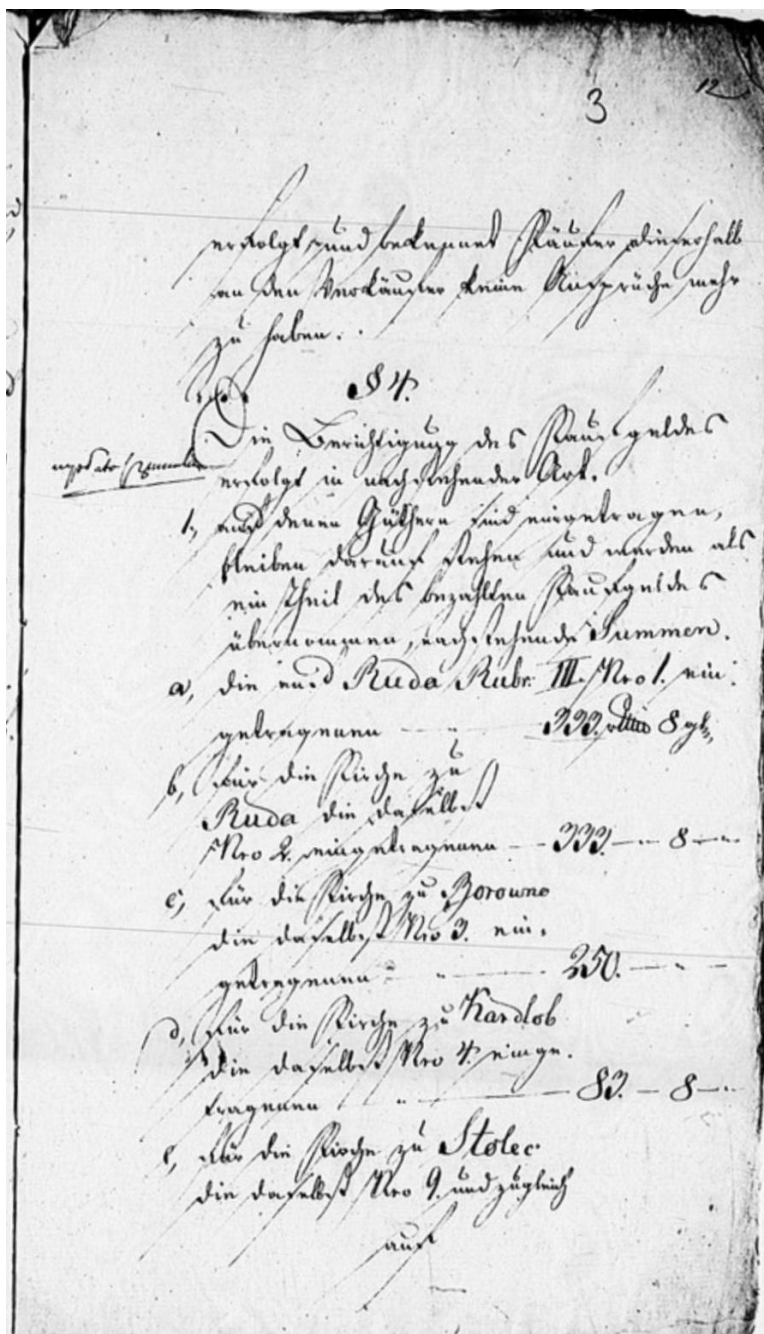 3
12
erfolgt, und bekennet Käufer dieserhalb
an den Verkäufer keine Ansprüche mehr
zu haben.
§ 4.
Die Berichtigung des Kaufgeldes
erfolgt in nachstehender Art.
1, auf denen Güthern sind eingetragen,
bleiben darauf stehen und werden als
ein Theil des bezahlten Kaufgeldes
übernommen, nachstehende Summen.
a, die auf Ruda Rubr. III. Nro 1. ein-
getragenen — 333. 8 gl
b, für die Kirche zu
Ruda die daselbst
Nro 2. eingetragenen — 333. — 8 —
c, für die Kirche zu Borowno
die daselbst Nro 3. ein-
getragenen — 250. —
d, für die Kirche zu
die daselbst Nro 4. einge-
tragenen — 83. — 8 —
e, für die Kirche zu Stolec
die daselbst Nro 9. und zugleich
auf